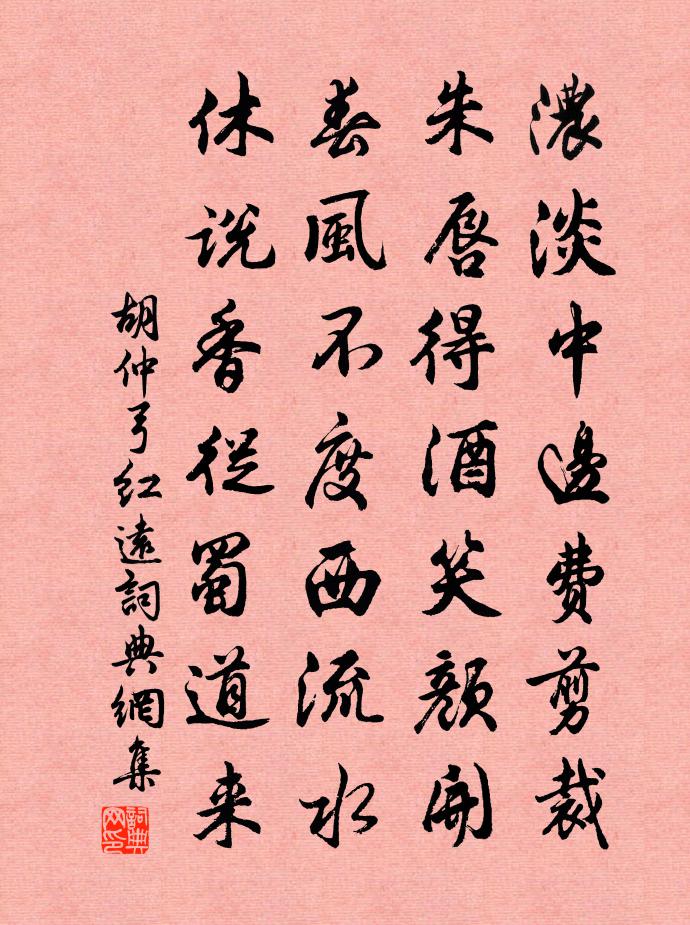 濃淡中邊費剪裁
朱唇得酒笑顏開
春風不度西流水
休説香從蜀道来
胡仲弓紅遠詞典網集
詞典网印